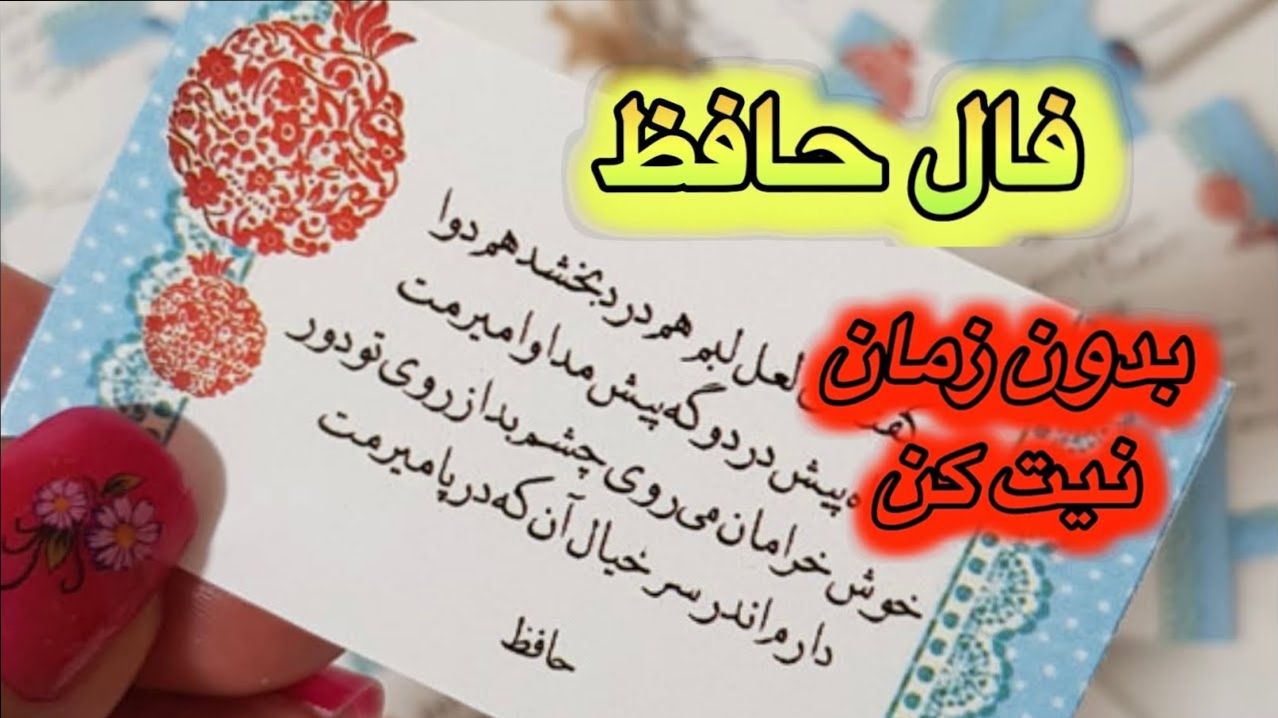 فال حافظ
بدون زمان
نیت کن
لعل لبم هم درد بخشد هم دوا
پیش درد و گه پیش مداوا میرمت
خوش خرامان می روی چشم بد از روی تو دور
دارم اندر سر خیال آن که در پا میرمت
حافظ